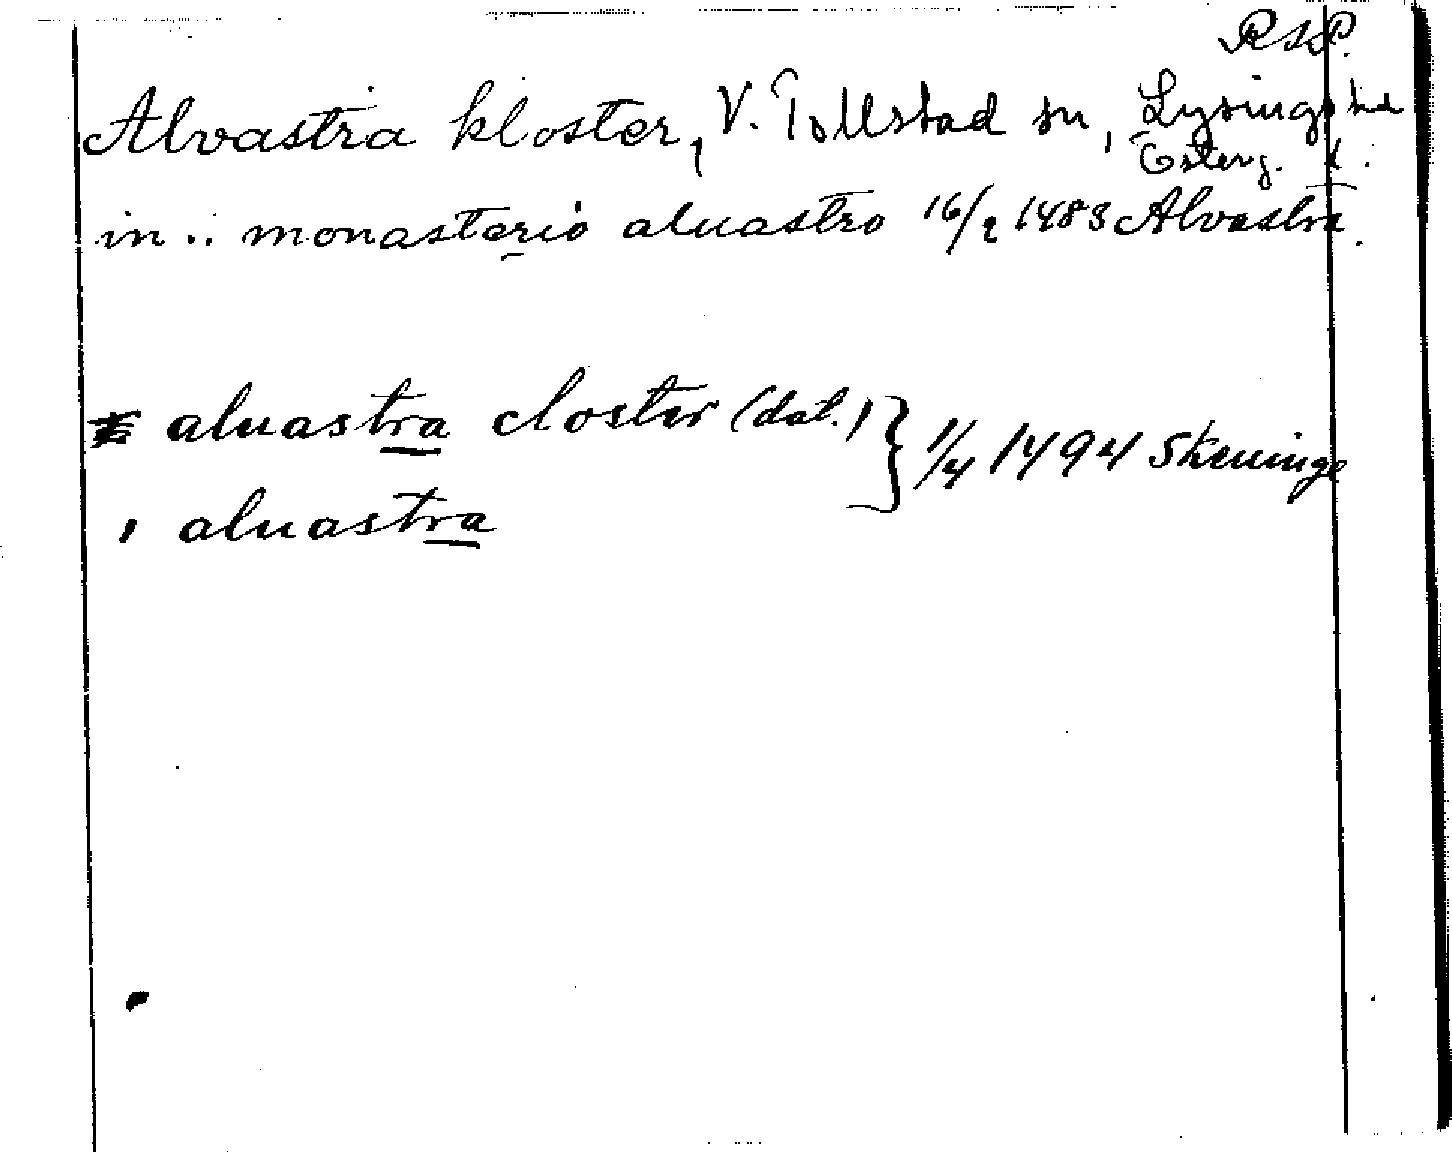 RAP.
Alvastra kloster, V. Tollstad sn, Lysings hd
Österg. l.
in .. monasterio aluastro 16/2 1483 Alvastra.
aluastra closter (dat.) } 1/4 1494 Skeninge
, aluastra